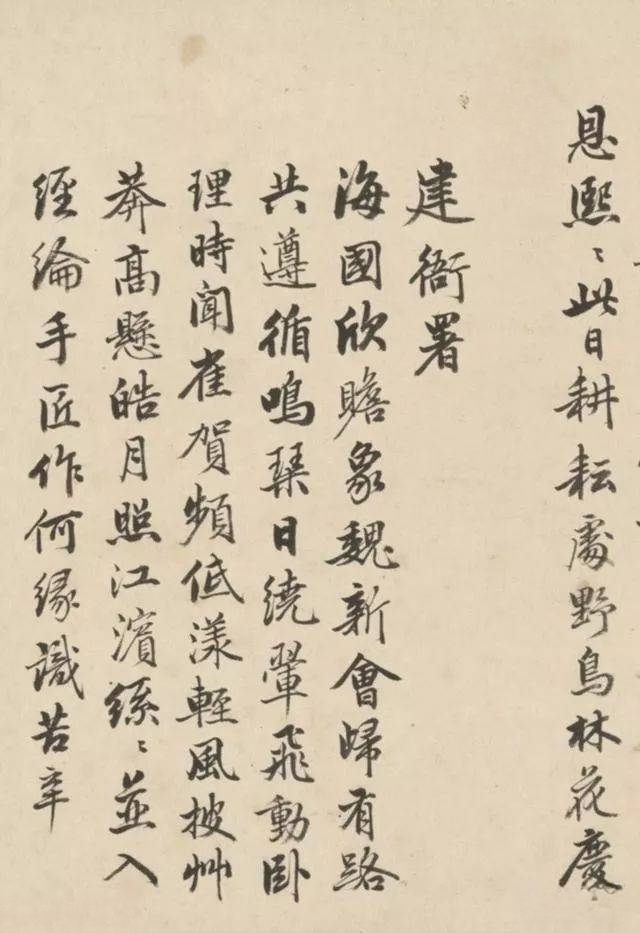 恩熙〻此日耕耘處野鳥林花慶
建衙署
海國欣瞻象魏新會歸有路
共遵循鳴琹日繞翬飛動卧
理時聞雀賀頻低漾輕風披艸
莽高懸皓月照江濱絲〻並入
經綸手匠作何緣識苦辛